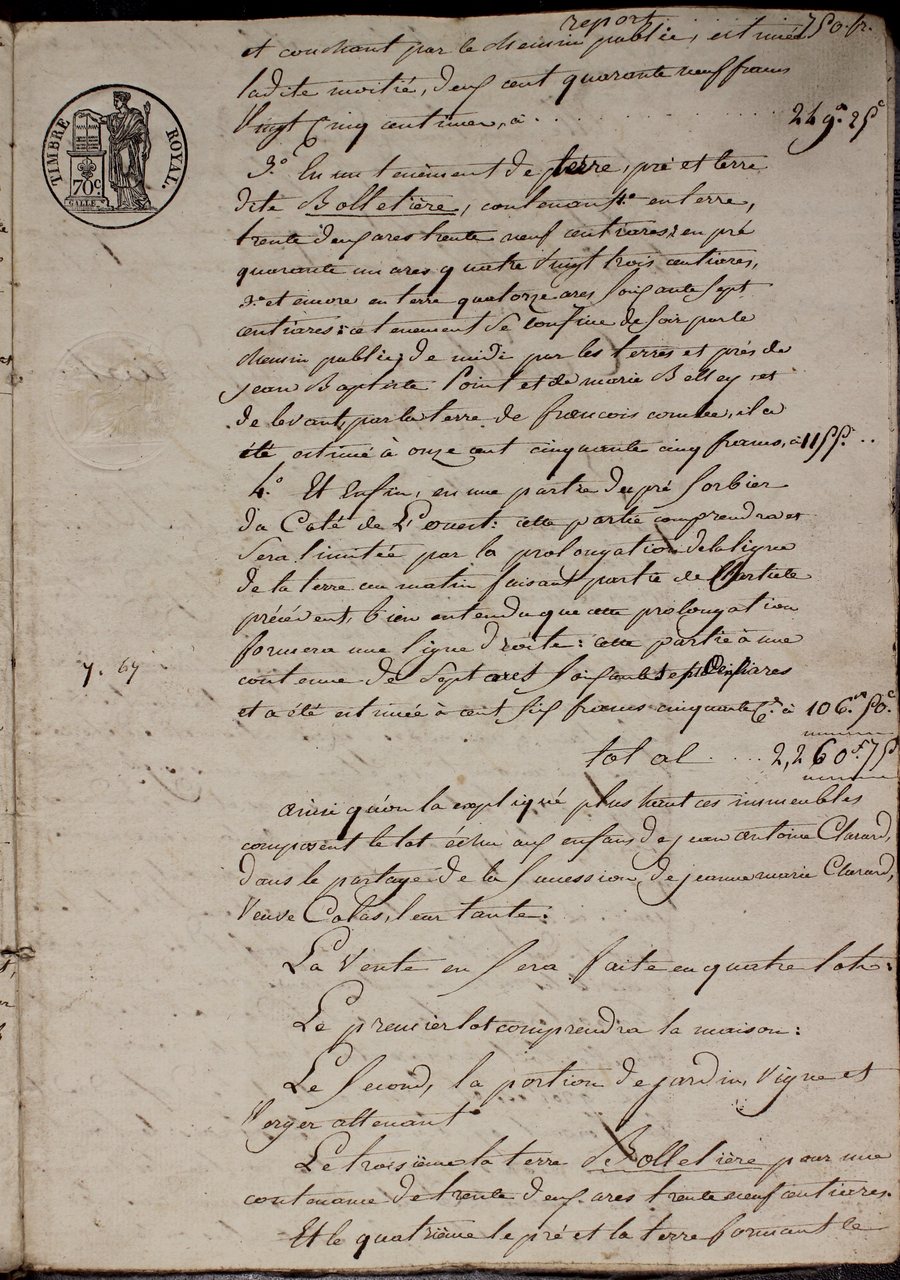 report 750. fr.
et couchant par le chemin public, estimée
ladite moitié, deux cent quarante neuf francs
Vingt Cinq centimes, à . . . . . . . . . 249.fr 25c
TIMBRE ROYAL.
70c.
3.o En un tenement de terre, pré et terre
dite Bolletière, contenant 1.o en terre,
trente deux ares trente neuf centiares; en pré
quarante un ares quatre Vingt trois centiares,
3.o et encore en terre quatorze ares soixante sept
centiares: ce tenement se Confine de soir par le
chemin public; de midi par les terres et prés de
jean Baptiste Point et de marie Belley, et
de levant, par la terre de francois combe, il a
été estimé à onze cent cinquante cinq francs, à 1155. . .
4.o Et Enfin, en une partie du pré Sorbier
du Coté de L'ouest: cette partie comprendra et
Sera limitée par la prolongation de la ligne
de la terre au matin faisant partie de l'article
précédent, bien entendu que cette prolongation
formera une ligne droite: cette partie à une
7. 67
contenue de Sept ares Soixante sept Centiares
et a été estimée à cent six francs cinquante C.s à 106.fr 50.c
total . . . . 2,260.fr 75c
ainsi qu'on la expliqué plus haut ces immeubles
composent le lot échu aux enfans de jean antoine Clarard,
dans le partage de la Succession de jeanne marie Clarard,
Veuve Colas, leur tante:
La Vente en Sera faite en quatre lots:
Le premier lot comprendra la maison:
Le Second, la portion de jardin, Vigne et
Verger attenant
Le troisième la terre Bolletière pour une
contenance de trente deux ares trente neuf centiares.
Et le quatrième le pré et la terre formant le